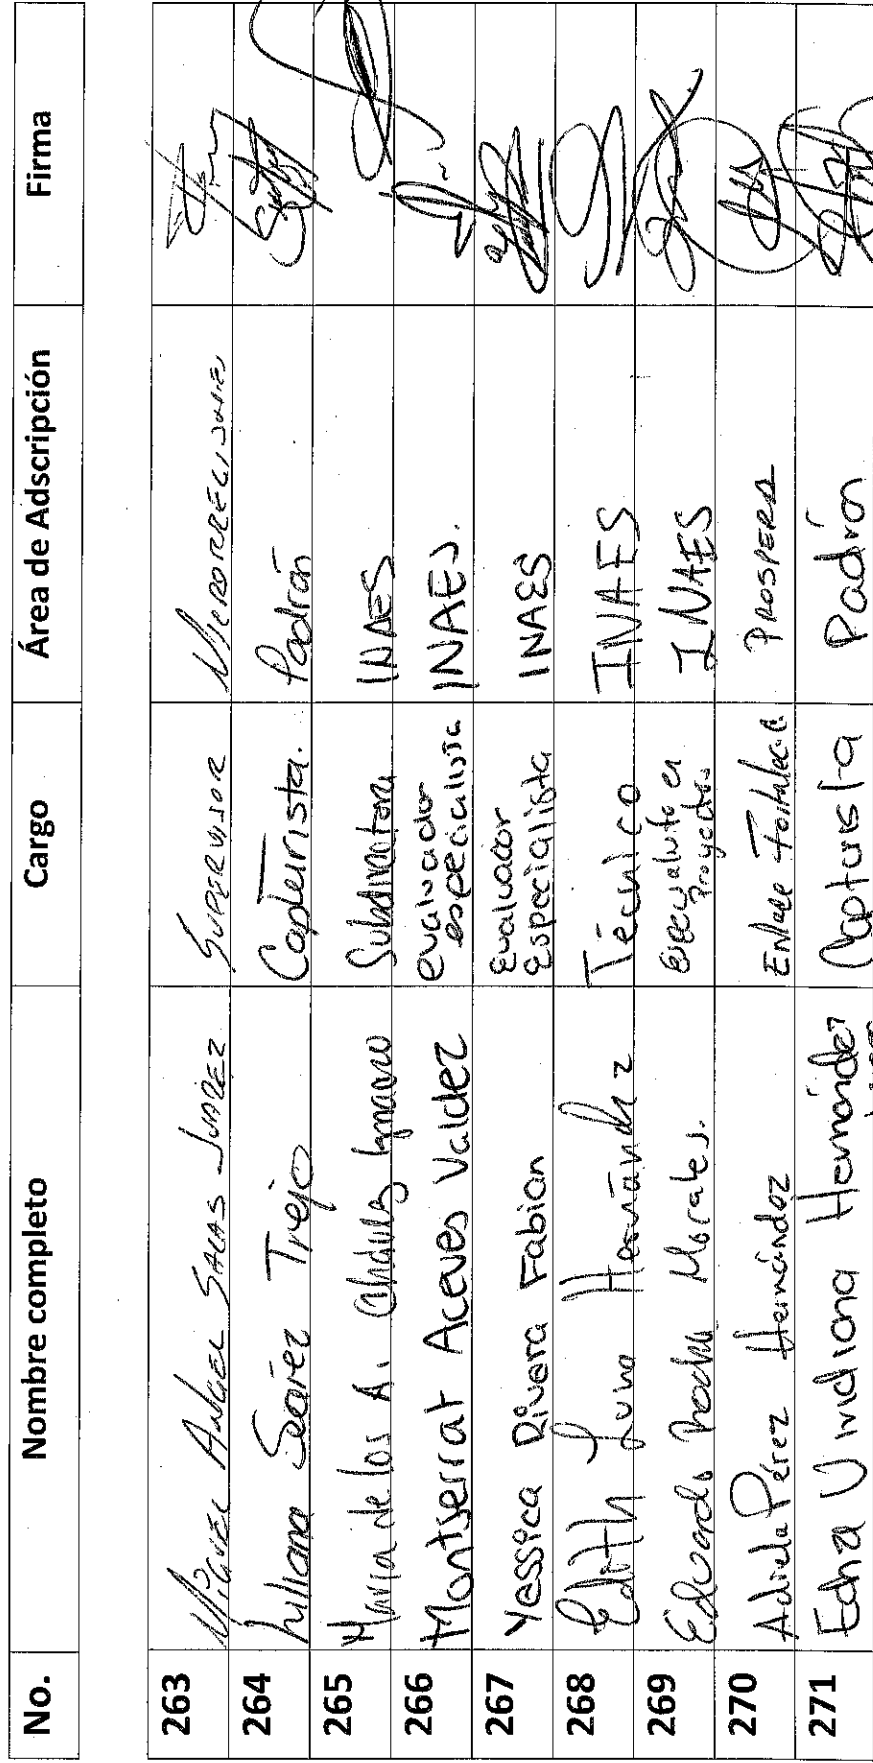 No. Nombre completo Cargo Área de Adscripción Firma
263 Miguel Angel Salas Juarez Supervisor
264 Juliana Suárez Trejo Capturista. Padrón
265 Maria de los A. Chávez Subdirectora INAES
266 Montserrat Aceves Valdez evaluador especialista INAES.
267 Yessica Rivera Fabian Evaluador Especialista INAES
268 Edith Luna Hernández Técnico INAES
269 Eduardo Morales. Especialista en Proyectos INAES
270 Pérez Hernández Enlace PROSPERA
271 Edna Viridiana Hernández Capturista Padrón